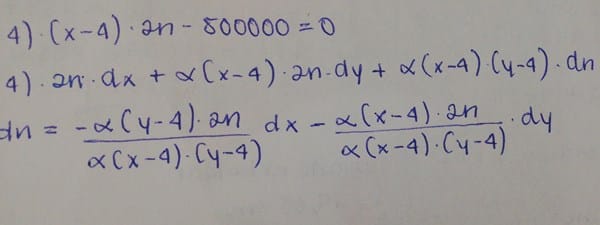 4)·(x-4)·2n-500000=0
4)·2n·dx+α(x-4)·2n·dy+α(x-4)·(y-4)·dn
dn = -α(y-4)·2n / α(x-4)·(y-4) dx - α(x-4)·2n / α(x-4)·(y-4) ·dy